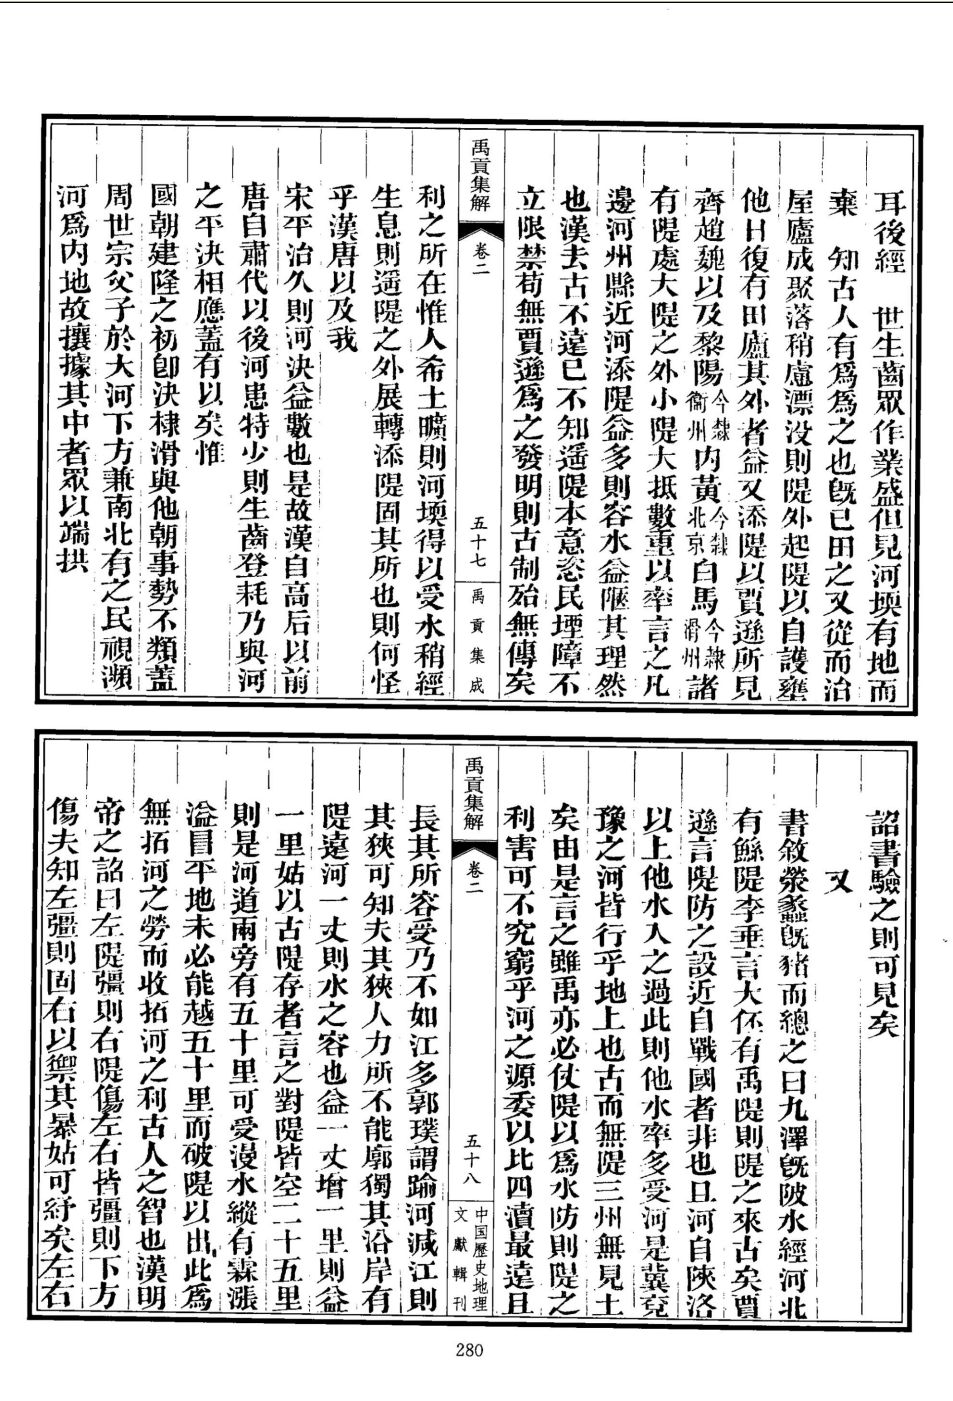 耳後經　世生齒眾作業盛但見河堧有地而
棄　知古人有爲爲之也旣已田之又從而治
屋廬成聚落稍慮漂没則隄外起隄以自護壅
他日復有田廬其外者益又添隄以賈遜所見
齊趙魏以及黎陽今隸衞州内黃今隸北京白馬今隸滑州諸
有隄處大隄之外小隄大抵數重以率言之凡
邊河州縣近河添隄益多則容水益陿其理然
也漢去古不遠已不知遥隄本意恣民堙障不
立限禁苟無賈遜爲之發明則古制殆無傳矣
禹貢集解
卷二
五十七
禹貢集成
利之所在惟人希土曠則河堧得以受水稍經
生息則遥隄之外展轉添隄固其所也則何怪
乎漢唐以及我
宋平治久則河決益數也是故漢自高后以前
唐自肅代以後河患特少則生齒登耗乃與河
之平決相應蓋有以矣惟
國朝建隆之初卽決棣滑與他朝事勢不類蓋
周世宗父子於大河下方兼南北有之民視瀕
河爲内地故攘據其中者眾以端拱
詔書驗之則可見矣
又
書敘滎蠡旣豬而總之曰九澤旣陂水經河北
有鯀隄李垂言大伾有禹隄則隄之來古矣賈
遜言隄防之設近自戰國者非也且河自陝洛
以上他水入之過此則他水率多受河是冀兗
豫之河皆行乎地上也古而無隄三州無見土
矣由是言之雖禹亦必仗隄以爲水防則隄之
利害可不究窮乎河之源委以比四瀆最遠且
禹貢集解
卷二
五十八
中国歷史地理
文獻輯刊
長其所容受乃不如江多郭璞謂踰河減江則
其狹可知夫其狹人力所不能廓獨其沿岸有
隄遠河一丈則水之容也益一丈增一里則益
一里姑以古隄存者言之對隄皆空二十五里
則是河道兩旁有五十里可受漫水縱有霖漲
溢冒平地未必能越五十里而破隄以出此爲
無拓河之勞而收拓河之利古人之智也漢明
帝之詔曰左隄彊則右隄傷左右皆彊則下方
傷夫知左彊則固右以禦其暴姑可紓矣左右
280